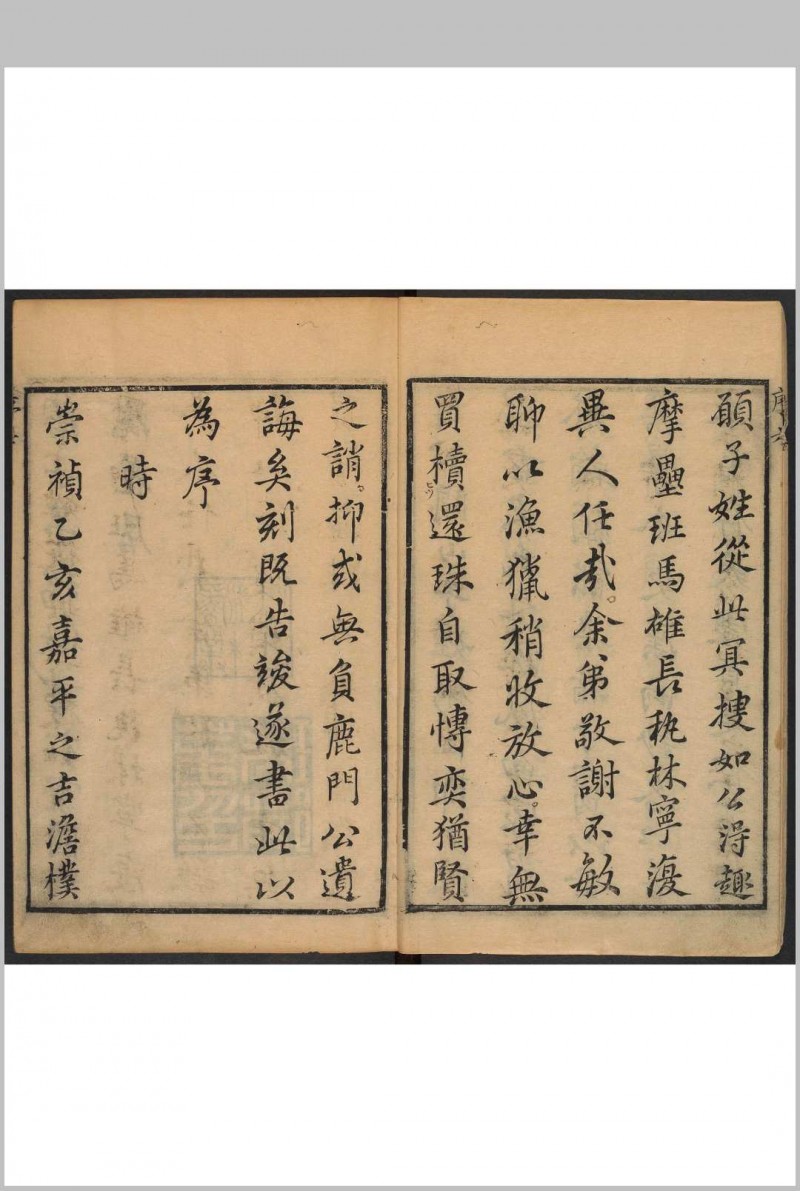 願子姓從此冥搜如公得趣
摩壘班馬雄長秇林寧復
異人任哉余弟敬謝不敏
聊以漁獵稍收放心幸無
買櫝還珠自取愽奕猶賢
之誚抑或無負鹿門公遺
誨矣刻既告竣遂書此以
為序
時
崇禎乙亥嘉平之吉澹樸
序